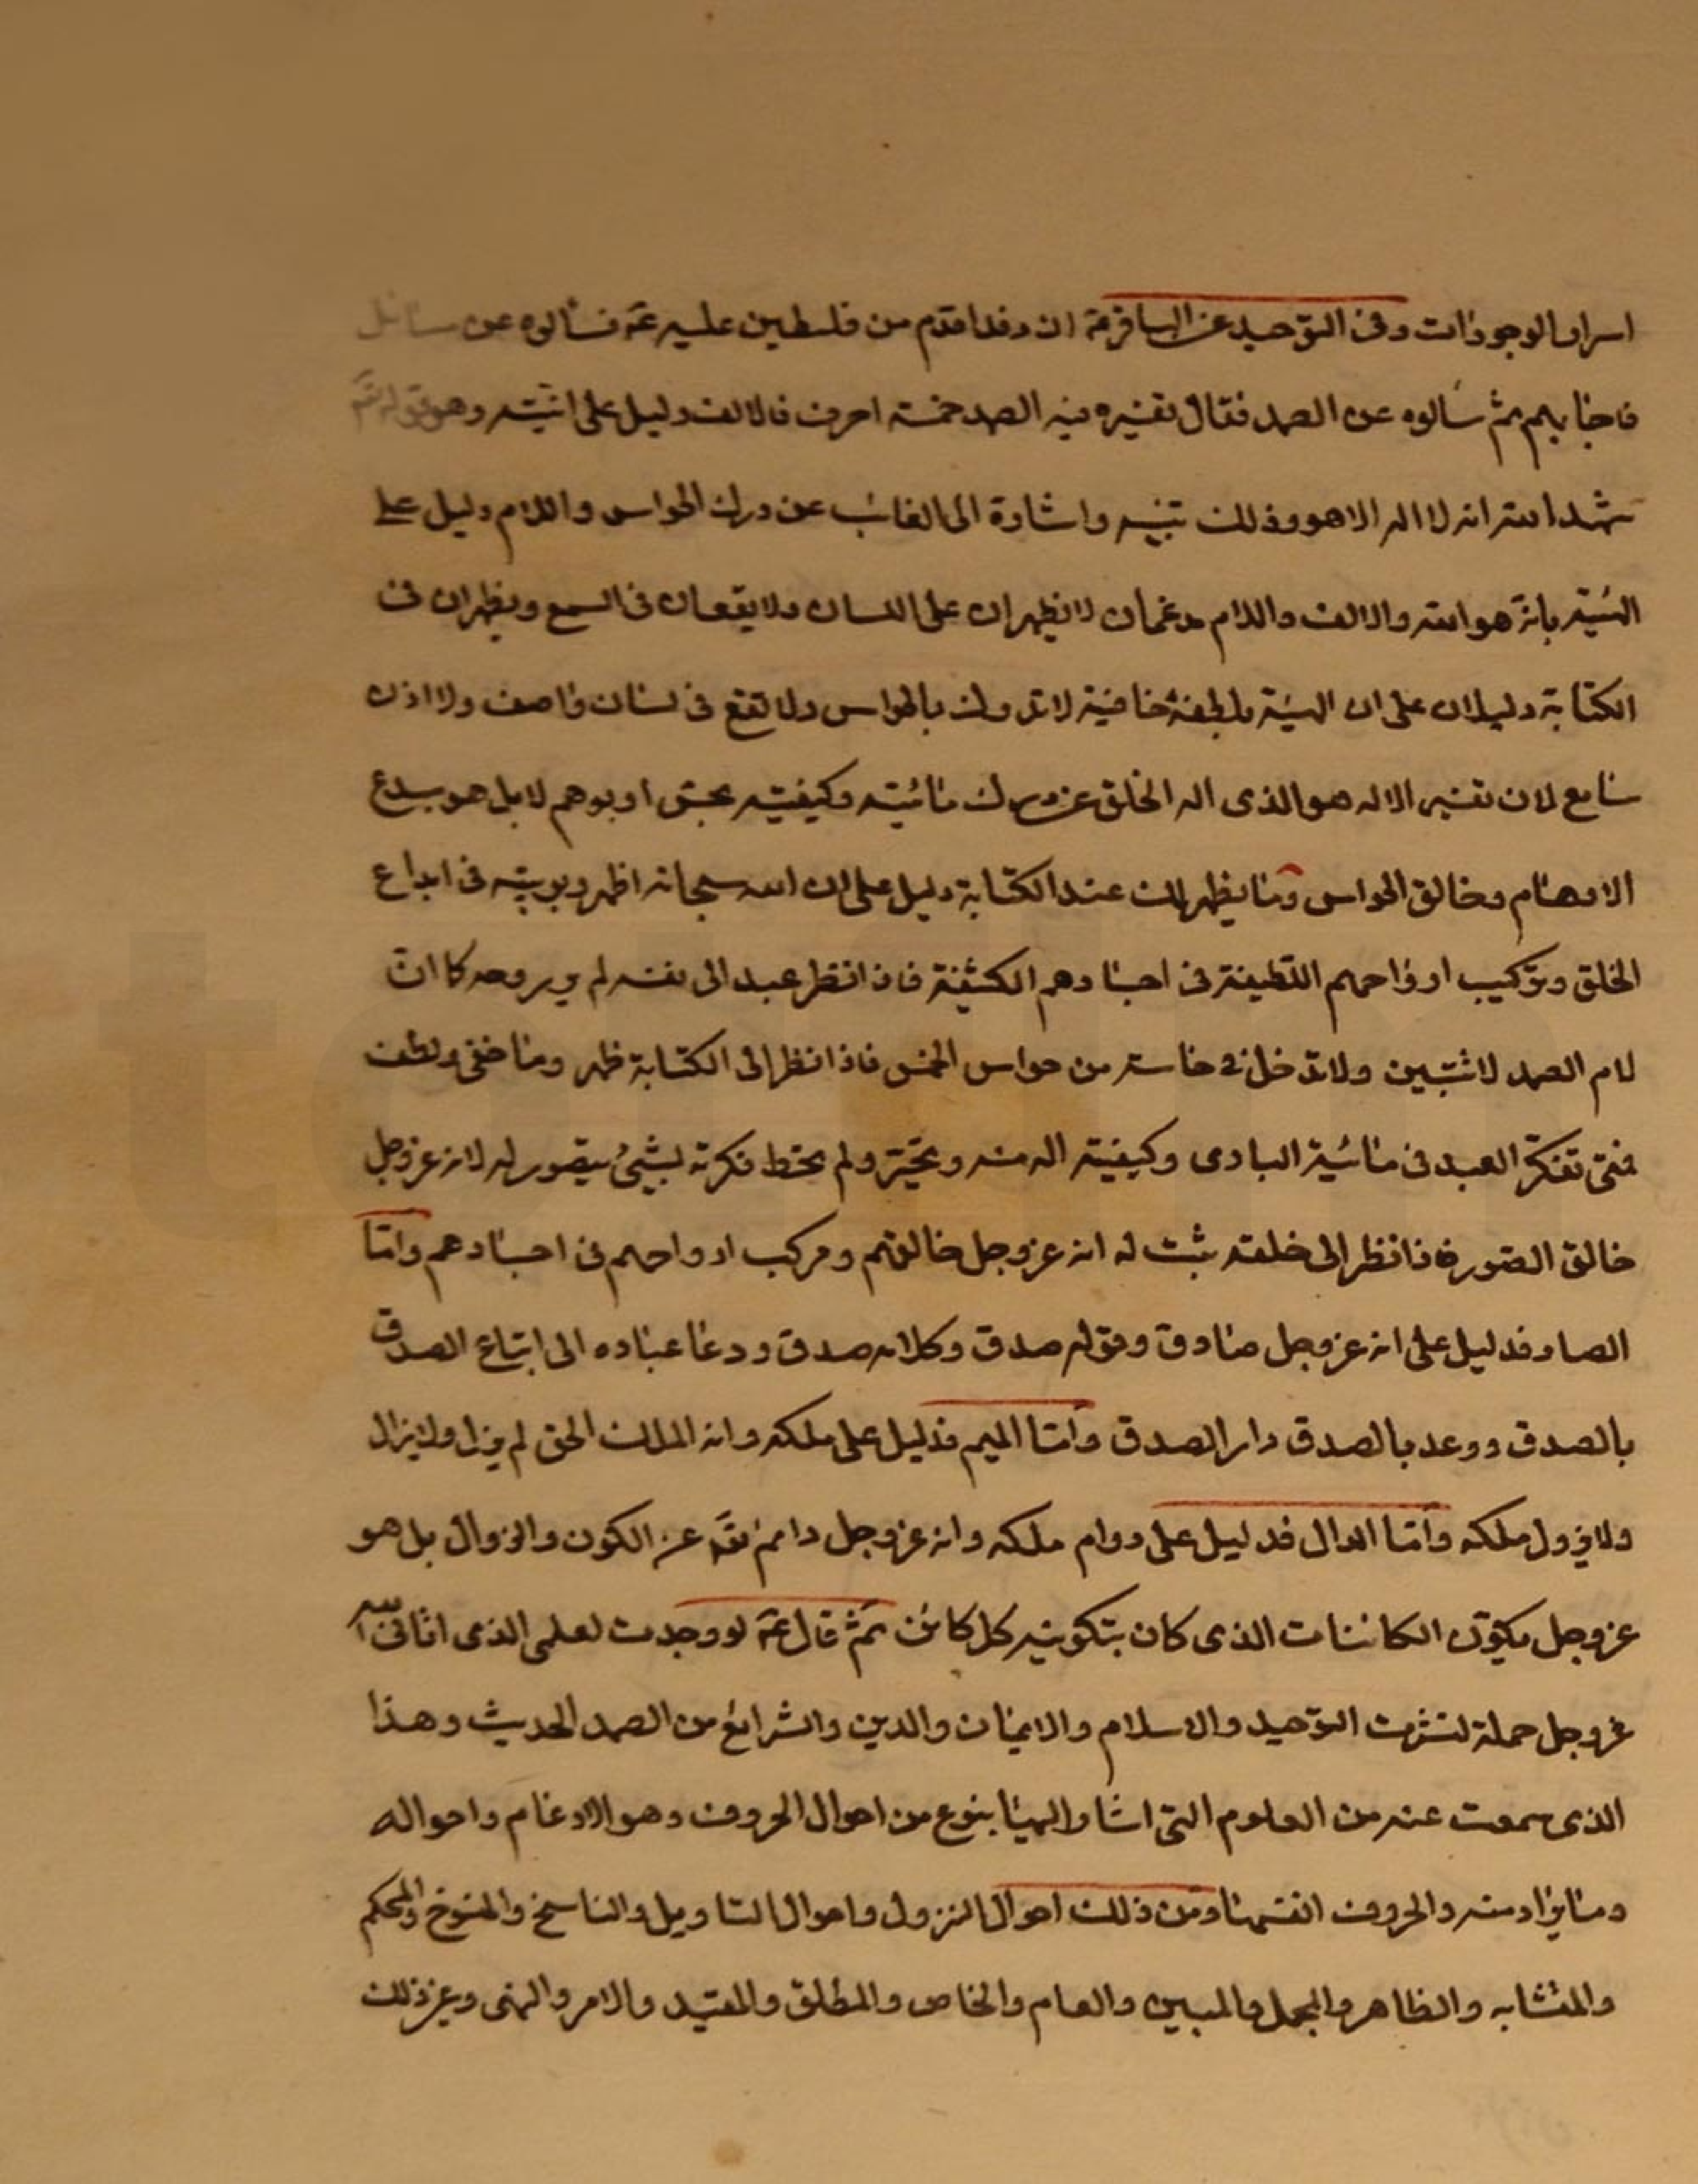 اسرار الموجودات وفى التوحيد عن الباقر عۤ ان وفدا قدم من فلسطين عليه عۤ فسألوه عن سائل
فاجابهم ثم سالوه عن الصمد فقال تفسيره فيه الصمد خمسة احرف فالالف دليل على انيته وهو قوله تۤع
شهد الله انه لا اله الا هو وذلك تنبيه واشارة الى الغائب عن درك الحواس واللام دليل على
الهيته بانه هو الله والالف واللام مدغمان لا يظهران على اللسان ولا يقعان فى السمع ويظهران فى
الكتابة دليلان على ان الهيته بلطفه خافية لا تدرك بالحواس ولا تقع فى لسان واصف ولا اذن
سامع لان تفسير الاله هو الذى اله الخلق عن درك مائيته وكيفيته بحس او بوهم لا بل هو مبدع
الاوهام وخالق الحواس وما يظهر ذلك عند الكتابة دليل على ان الله سبحانه اظهر ربوبيته فى ابداع
الخلق وتركيب ارواحهم اللطيفة فى اجسادهم الكثيفة فاذا نظر عبد الى نفسه لم ير روحه كما ان
لام الصمد لا تتبين ولا تدخل فى حاسته من حواس الخمس فاذا نظر الى الكتابة ظهر وما خفى ولطف
فمتى تفكر العبد فى مائية البارى وكيفيته اله منه وتحير ولم تحط فكرته بشيئ يتصور له لانه عز وجل
خالق الصور فاذا نظر الى خلقه ثبت له انه عز وجل خالقهم ومركب ارواحهم فى اجسادهم واما
الصاد فدليل على انه عز وجل صادق وقوله صدق وكلامه صدق ودعا عباده الى اتباع الصدق
بالصدق ووعد بالصدق دار الصدق واما الميم فدليل على ملكه وانه الملك الحق لم يزل ولا يزال
ولا يزول ملكه واما الدال فدليل على دوام ملكه وانه عز وجل دائم تعۤ عن الكون والزوال بل هو
عز وجل مكون الكائنات الذى كان بتكوينه كل كائن ثم قال عۤ لو وجدت لعلمى الذى اتانى الله
عز وجل حملة لنشرت التوحيد والاسلام والايمان والدين والشرايع من الصمد الحديث وهذا
الذى سمعت عنه من العلوم التى اشار اليها بنوع من احوال الحروف وهو الادغام واحواله
وما يراد منه والحروف انفسها ومن ذلك احوال النزول واحوال التاويل والناسخ والمنسوخ والمحكم
والمتشابه والظاهر والمجمل والمبين والعام والخاص والمطلق والمقيد والامر والنهى وغير ذلك